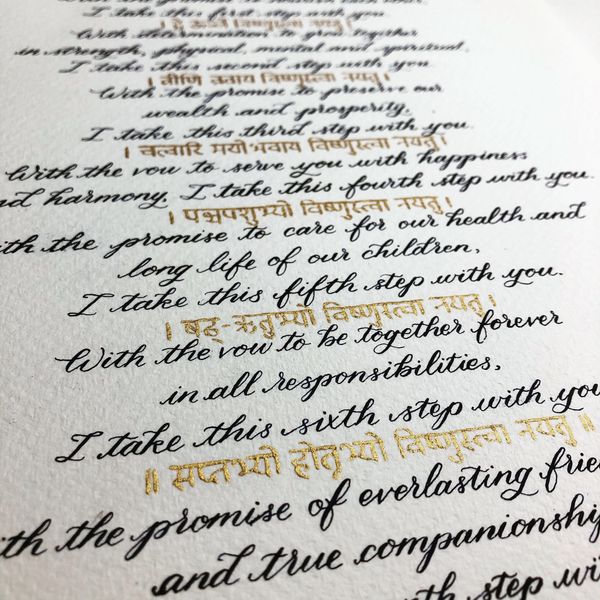 I take this first step with you
। द्वे ऊर्जे विष्णुस्त्वा नयतु।
With determination to grow together
in strength, physical, mental and spiritual,
I take this second step with you
। त्रीणि व्रताय विष्णुस्त्वा नयतु।
With the promise to preserve our
wealth and prosperity,
I take this third step with you.
। चत्वारि मयोभवाय विष्णुस्त्वा नयतु।
With the vow to serve you with happiness
and harmony, I take this fourth step with you.
। पञ्चपशुभ्यो विष्णुस्त्वा नयतु।
the promise to care for our health and
long life of our children,
I take this fifth step with you.
। षढ्-ऋतुभ्यो विष्णुस्त्वा नयतु।
With the vow to be together forever
in all responsibilities,
I take this sixth step with you
॥ सप्तभ्यो होतृभ्यो विष्णुस्त्वा नयतु ॥
the promise of everlasting frie
and true companionship
step with